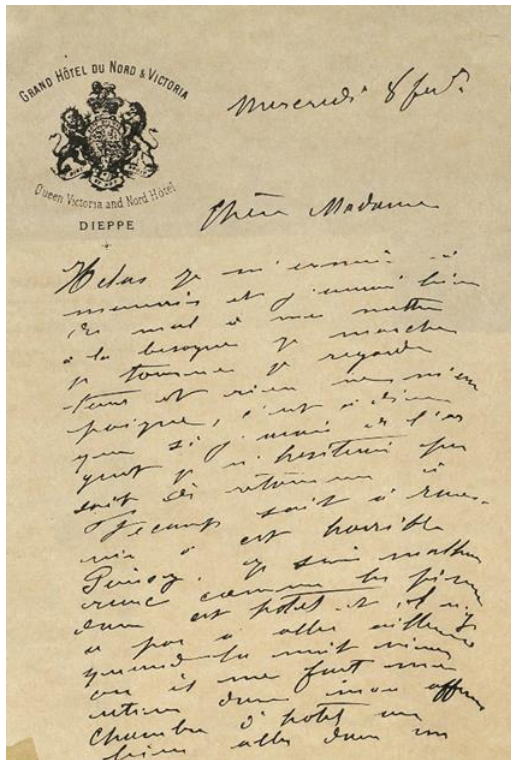 GRAND HÔTEL DU NORD & VICTORIA
Queen Victoria and Nord Hôtel
DIEPPE
Mercredi 8 fev.
Chère Madame
Helas je m'ennuie à
et j'aurai bien
du mal à me mettre
à la besogne je marche
je tourne je regarde
tout et rien ne m'em
poigne, c'est à dire
que si j'avais de l'ar
gent je n'hesiterai pas
soit de retourner à
Fecamp soit à
est horrible
Poissy. Je suis malheu
reux comme les pierres
dans cet hotel et il n'y
a pas à aller ailleurs
quand la nuit vient
ou il me faut me
retirer dans mon affreuse
chambre d'hotel ou
bien aller dans un